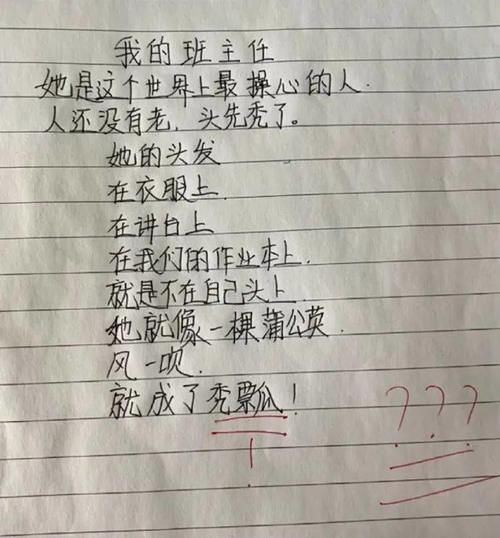 我的班主任
她是这个世界上最操心的人.
人还没有老，头先秃了。
她的头发
在衣服上.
在讲台上
在我们的作业本上.
就是不在自己头上.
她就像一棵蒲公英.
风一吹.
就成了秃瓢瓜！
！
？？？